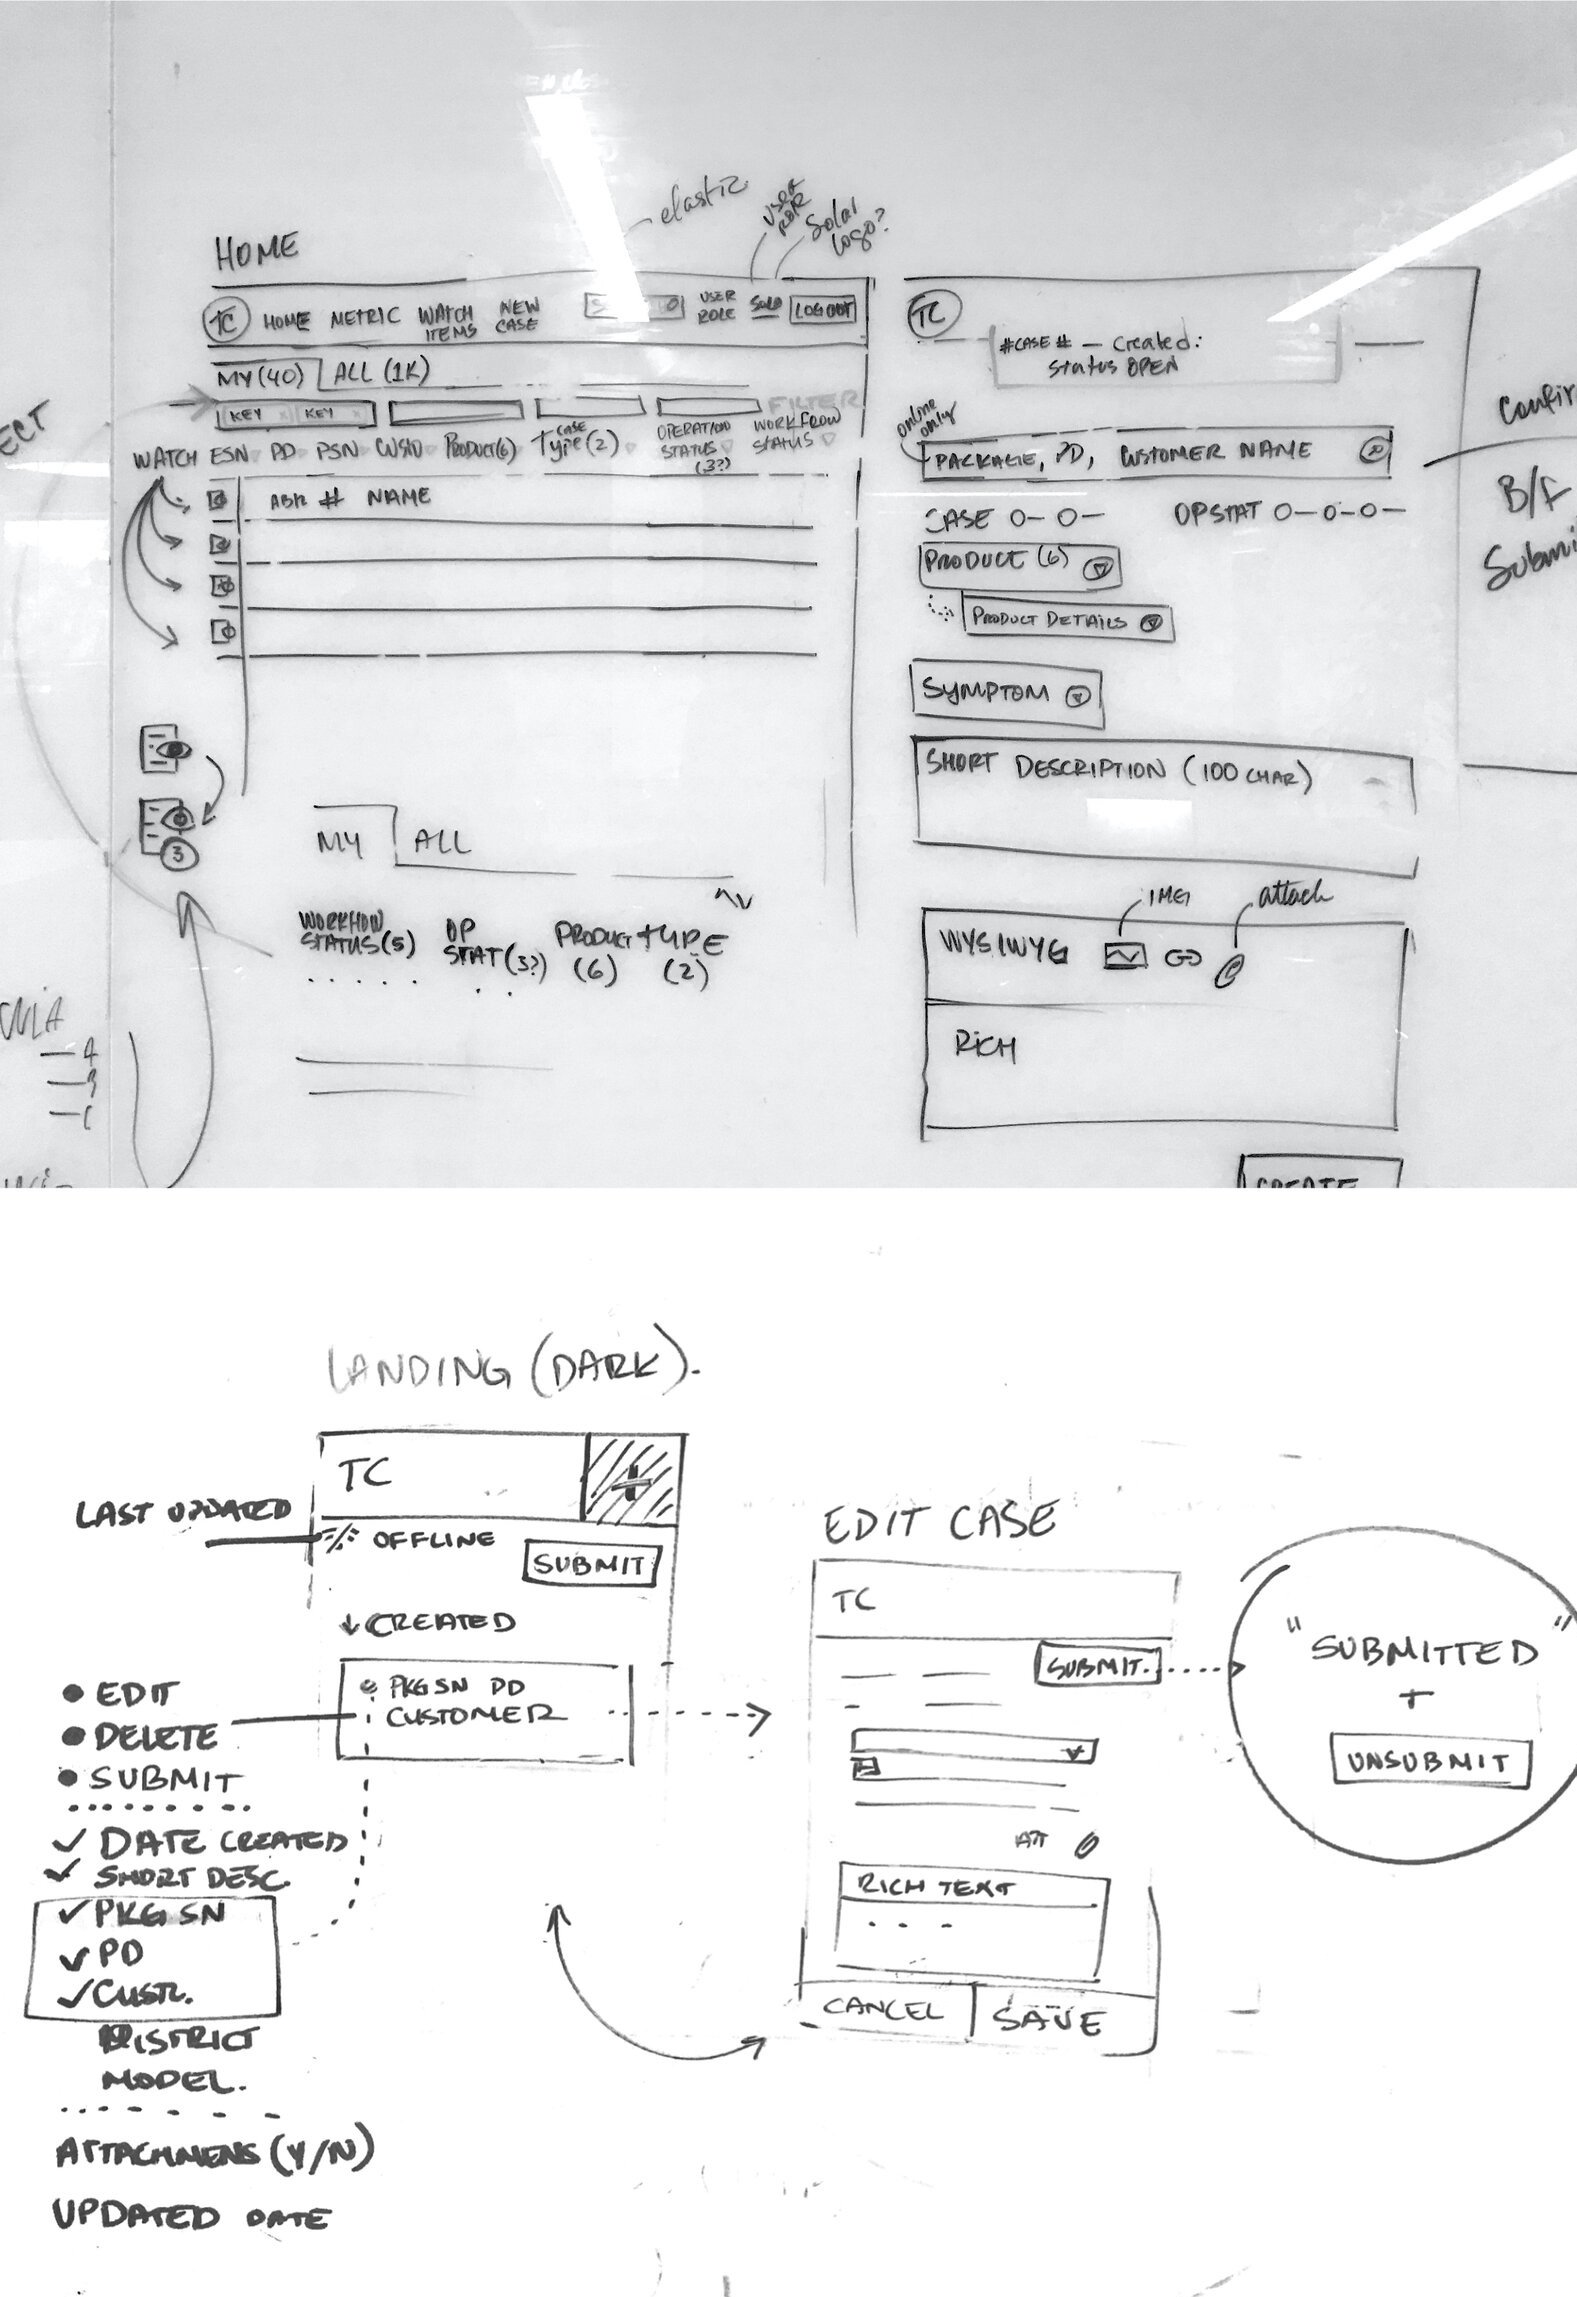 HOME
elastic
USER ROLE
Solar logo?
TC HOME METRIC WATCH ITEMS NEW CASE USER ROLE LOGOUT
MY (40) ALL (1K)
KEY × KEY × FILTER
WATCH ESN PD PSN CUSTO PRODUCT(6) CASE TYPE (2) OPERATION STATUS (3?) WORKFLOW STATUS
# NAME
3
MY ALL
WORKFLOW STATUS (5) OP STAT (3?) PRODUCT (6) TYPE (2)
ECT
TC
#CASE # – Created:
status OPEN
online only
PACKAGE, PD, CUSTOMER NAME
CASE OPSTAT
PRODUCT (6)
PRODUCT DETAILS
SYMPTOM
SHORT DESCRIPTION (100 CHAR)
IMG attach
WYSIWYG
RICH
CREATE
Confir
B/F
Submi
LANDING (DARK).
TC +
LAST UPDATED
OFFLINE
SUBMIT
↓ CREATED
PKGSN PD
CUSTOMER
• EDIT
• DELETE
• SUBMIT
✓ DATE CREATED
✓ SHORT DESC.
✓ PKG SN
✓ PD
✓ CUSTR.
DISTRICT
MODEL.
ATTACHMENS (Y/N)
UPDATED DATE
EDIT CASE
TC
SUBMIT.
ATT
RICH TEXT
CANCEL SAVE
"SUBMITTED"
+
UNSUBMIT